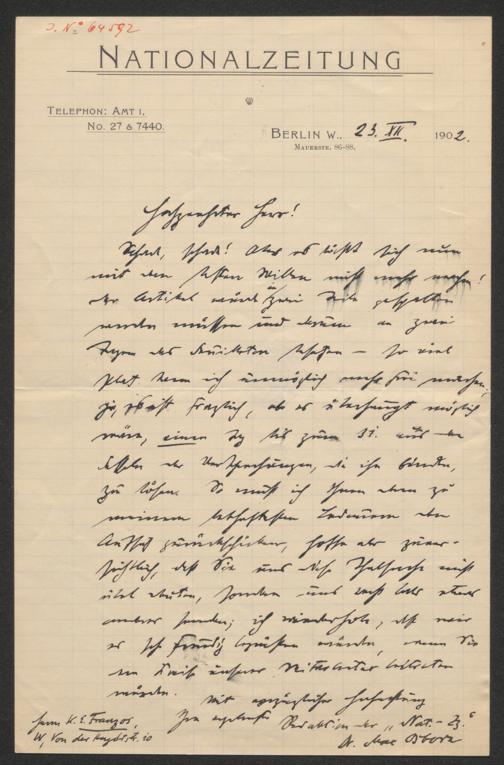 J. № 64592
NATIONALZEITUNG
TELEPHON: AMT I,
No. 27 & 7440.
BERLIN W., 23. XII. 1902.
MAUERSTR. 86-88.
Hochgeehrter Herr!
Schade, schade! Aber es läßt sich nun
mit dem besten Willen nicht mehr machen!
der Artikel würde in zwei Teile gespalten
werden müssen und darum an zwei
Tagen das Feuilleton besetzen – so viel
Platz kann ich unmöglich mehr frei machen,
ja, es ist fraglich, ob es überhaupt möglich
wäre, einen Tag bis zum 31. aus den
Fesseln der Versprechungen, die ihn binden,
zu lösen. So muß ich Ihnen denn zu
meinem lebhaftesten Bedauern den
Aufsatz zurückschicken, hoffe aber zuver-
sichtlich, daß Sie uns diese Thatsache nicht
übel deuten, sondern uns recht bald etwas
anderes senden; ich wiederhole, daß wir
es sehr freudig begrüßen würden, wenn Sie
in den Kreis unserer Mitarbeiter
würden.
Mit vorzüglicher Hochachtung
Ihr ergebenster Redaktion der „Nat.-Ztg."
Dr. Max Osborn
Herrn K. E. Franzos,
W, Von der Heydtstr. 10